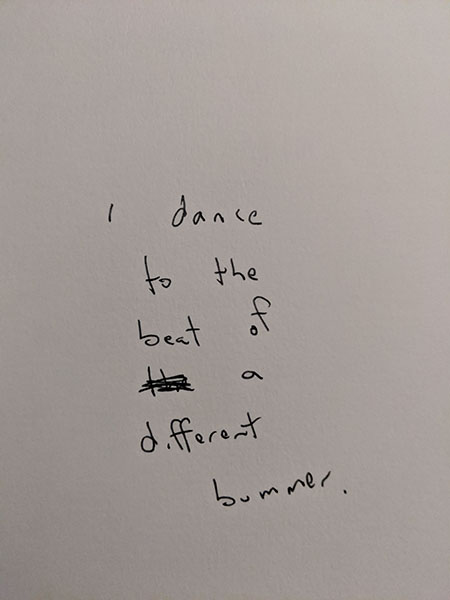 I dance
to the
beat of
a
different
bummer.